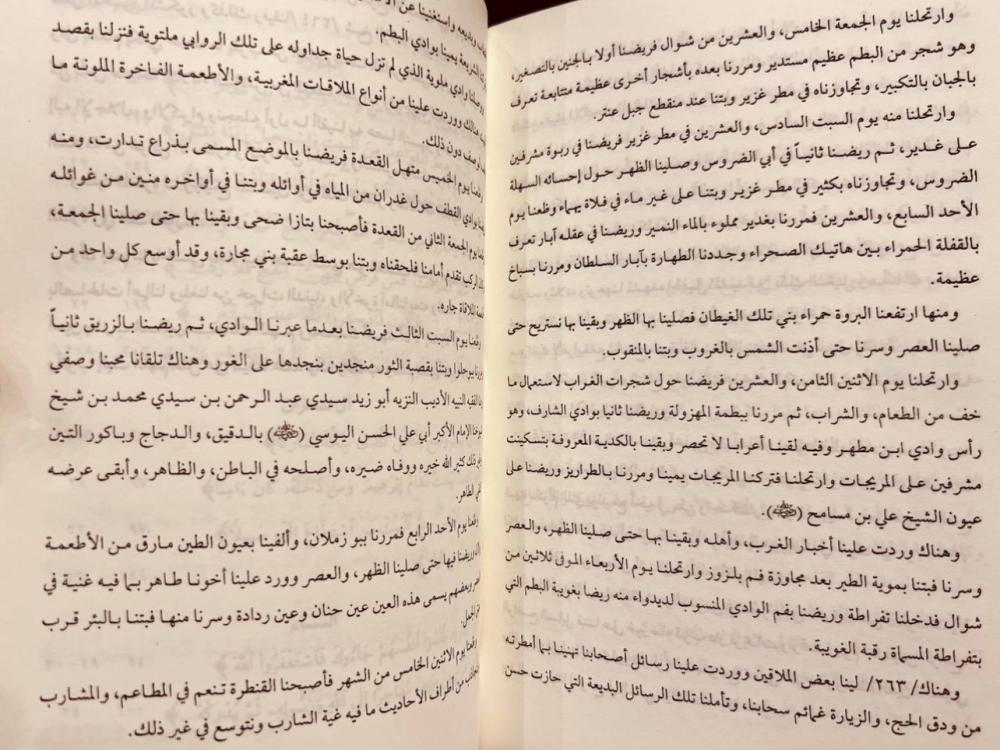 وارتحلنا يوم الجمعة الخامس، والعشرين من شوال فريضنا أولا بالجنين بالتصغير،
وهو شجر من البطم عظيم مستدير ومررنا بعده بأشجار أخرى عظيمة متتابعة تعرف
بالجبان بالتكبير، وتجاوزناه في مطر غزير وبتنا عند منقطع جبل عنتر.
وارتحلنا منه يوم السبت السادس، والعشرين في مطر غزير فريضنا في ربوة مشرفين
على غدير، ثم ريضنا ثانياً في أبي الضروس وصلينا الظهر حول إحسائه السهلة
الضروس، وتجاوزناه بكثير في مطر غزير وبتنا على غير ماء في فلاة يهماء وظعنا يوم
الأحد السابع، والعشرين فمررنا بغدير مملوء بالماء النمير وريضنا في عقله آبار تعرف
بالقفلة الحمراء بين هاتيك الصحراء وجددنا الطهارة بآبار السلطان ومررنا بسباخ
عظيمة.
ومنها ارتفعنا البروة حمراء بني تلك الغيطان فصلينا بها الظهر وبقينا بها نستريح حتى
صلينا العصر وسرنا حتى أذنت الشمس بالغروب وبتنا بالمنقوب.
وارتحلنا يوم الاثنين الثامن، والعشرين فريضنا حول شجرات الغراب لاستعمال ما
خف من الطعام، والشراب، ثم مررنا ببطمة المهزولة وريضنا ثانيا بوادي الشارف، وهو
رأس وادي ابن مطهر وفيه لقينا أعرابا لا تحصر وبقينا بالكدية المعروفة بتسكينت
مشرفين على المريجات وارتحلنا فتركنا المريجات يمينا ومررنا بالطرازيز وريضنا على
عيون الشيخ علي بن مسامح (﵁).
وهناك وردت علينا أخبار الغرب، وأهله وبقينا بها حتى صلينا الظهر، والعصر
وسرنا فبتنا بموية الطير بعد مجاوزة فم بلزوز وارتحلنا يوم الأربعاء الموفى ثلاثين من
شوال فدخلنا تفراطة وريضنا بفم الوادي المنسوب لديدواء منه ريضا بغوية البطم التي
بتفراطة المسماة رقبة الغويبة.
وهناك/ ٢٦٣/ لينا بعض الملاقين ووردت علينا رسائل أصحابنا تهنينا بما أمطرته
من ودق الحج، والزيارة غمائم سحابنا، وتأملنا تلك الرسائل البديعة التي حازت حسن
وبديعه واستغنينا عن
الشريعة يمينا بوادي البطم.
وادي ملوية الذي لم تزل حياة جداوله على تلك الروابي ملتوية فنزلنا بقصد
هنالك ووردت علينا من أنواع الملاقات المغربية، والأطعمة الفاخرة الملونة ما
دون ذلك.
يوم الخميس متهل القعدة فريضنا بالموضع المسمى بذراع تدارت، ومنه
بوادي القطف حول غدران من المياه في أوائله وبتنا في أواخره منين من غوائله
يوم الجمعة الثاني من القعدة فأصبحنا بتازا ضحى وبقينا بها حتى صلينا الجمعة،
الركب تقدم أمامنا فلحقناه وبتنا بوسط عقبة بني مجارة، وقد أوسع كل واحد من
لملاقاة جاره.
يوم السبت الثالث فريضنا بعدما عبرنا الوادي، ثم ريضنا بالزريق ثانياً
ببوحلوا وبتنا بقصبة الثور منجدين بنجدها على الغور وهناك تلقانا محبنا وصفي
الفقيه النبيه الأديب النزيه أبو زيد سيدي عبد الرحمن بن سيدي محمد بن شيخ
الإمام الأكبر أبي علي الحسن اليوسي (﵁) بالدقيق، والدجاج وباكور التين
ذلك كثر الله خيره ووفاه ضيره، وأصلحه في الباطن، والظاهر، وأبقى عرضه
الطاهر.
يوم الأحد الرابع فمررنا ببو زملان، وألفينا بعيون الطين مارق من الأطعمة
وريضنا فيها حتى صلينا الظهر، والعصر وورد علينا أخونا طاهر بما فيه غنية في
وبعضهم يسمى هذه العين عين حنان وعين ردادة وسرنا منها فبتنا بالبئر قرب
الجمل.
يوم الاثنين الخامس من الشهر فأصبحنا القنطرة تنعم في المطاعم، والمشارب
من أطراف الأحاديث ما فيه غية الشارب ونتوسع في غير ذلك.